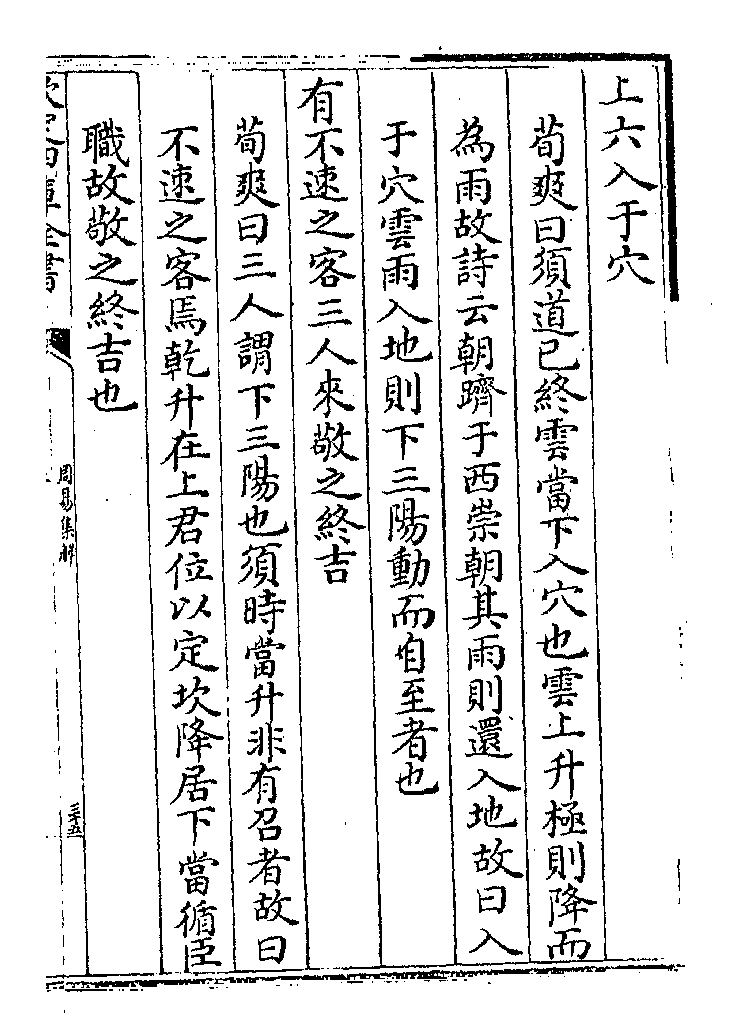 上六入于穴
荀爽曰須道已終雲當下入穴也雲上升極則降而
為雨故詩云朝躋于西崇朝其雨則還入地故曰入
于穴雲雨入地則下三陽動而自至者也
有不速之客三人來敬之終吉
荀爽曰三人謂下三陽也須時當升非有召者故曰
不速之客焉乾升在上君位以定坎降居下當循臣
職故敬之終吉也
欽定四庫全書
周易集解
三十五